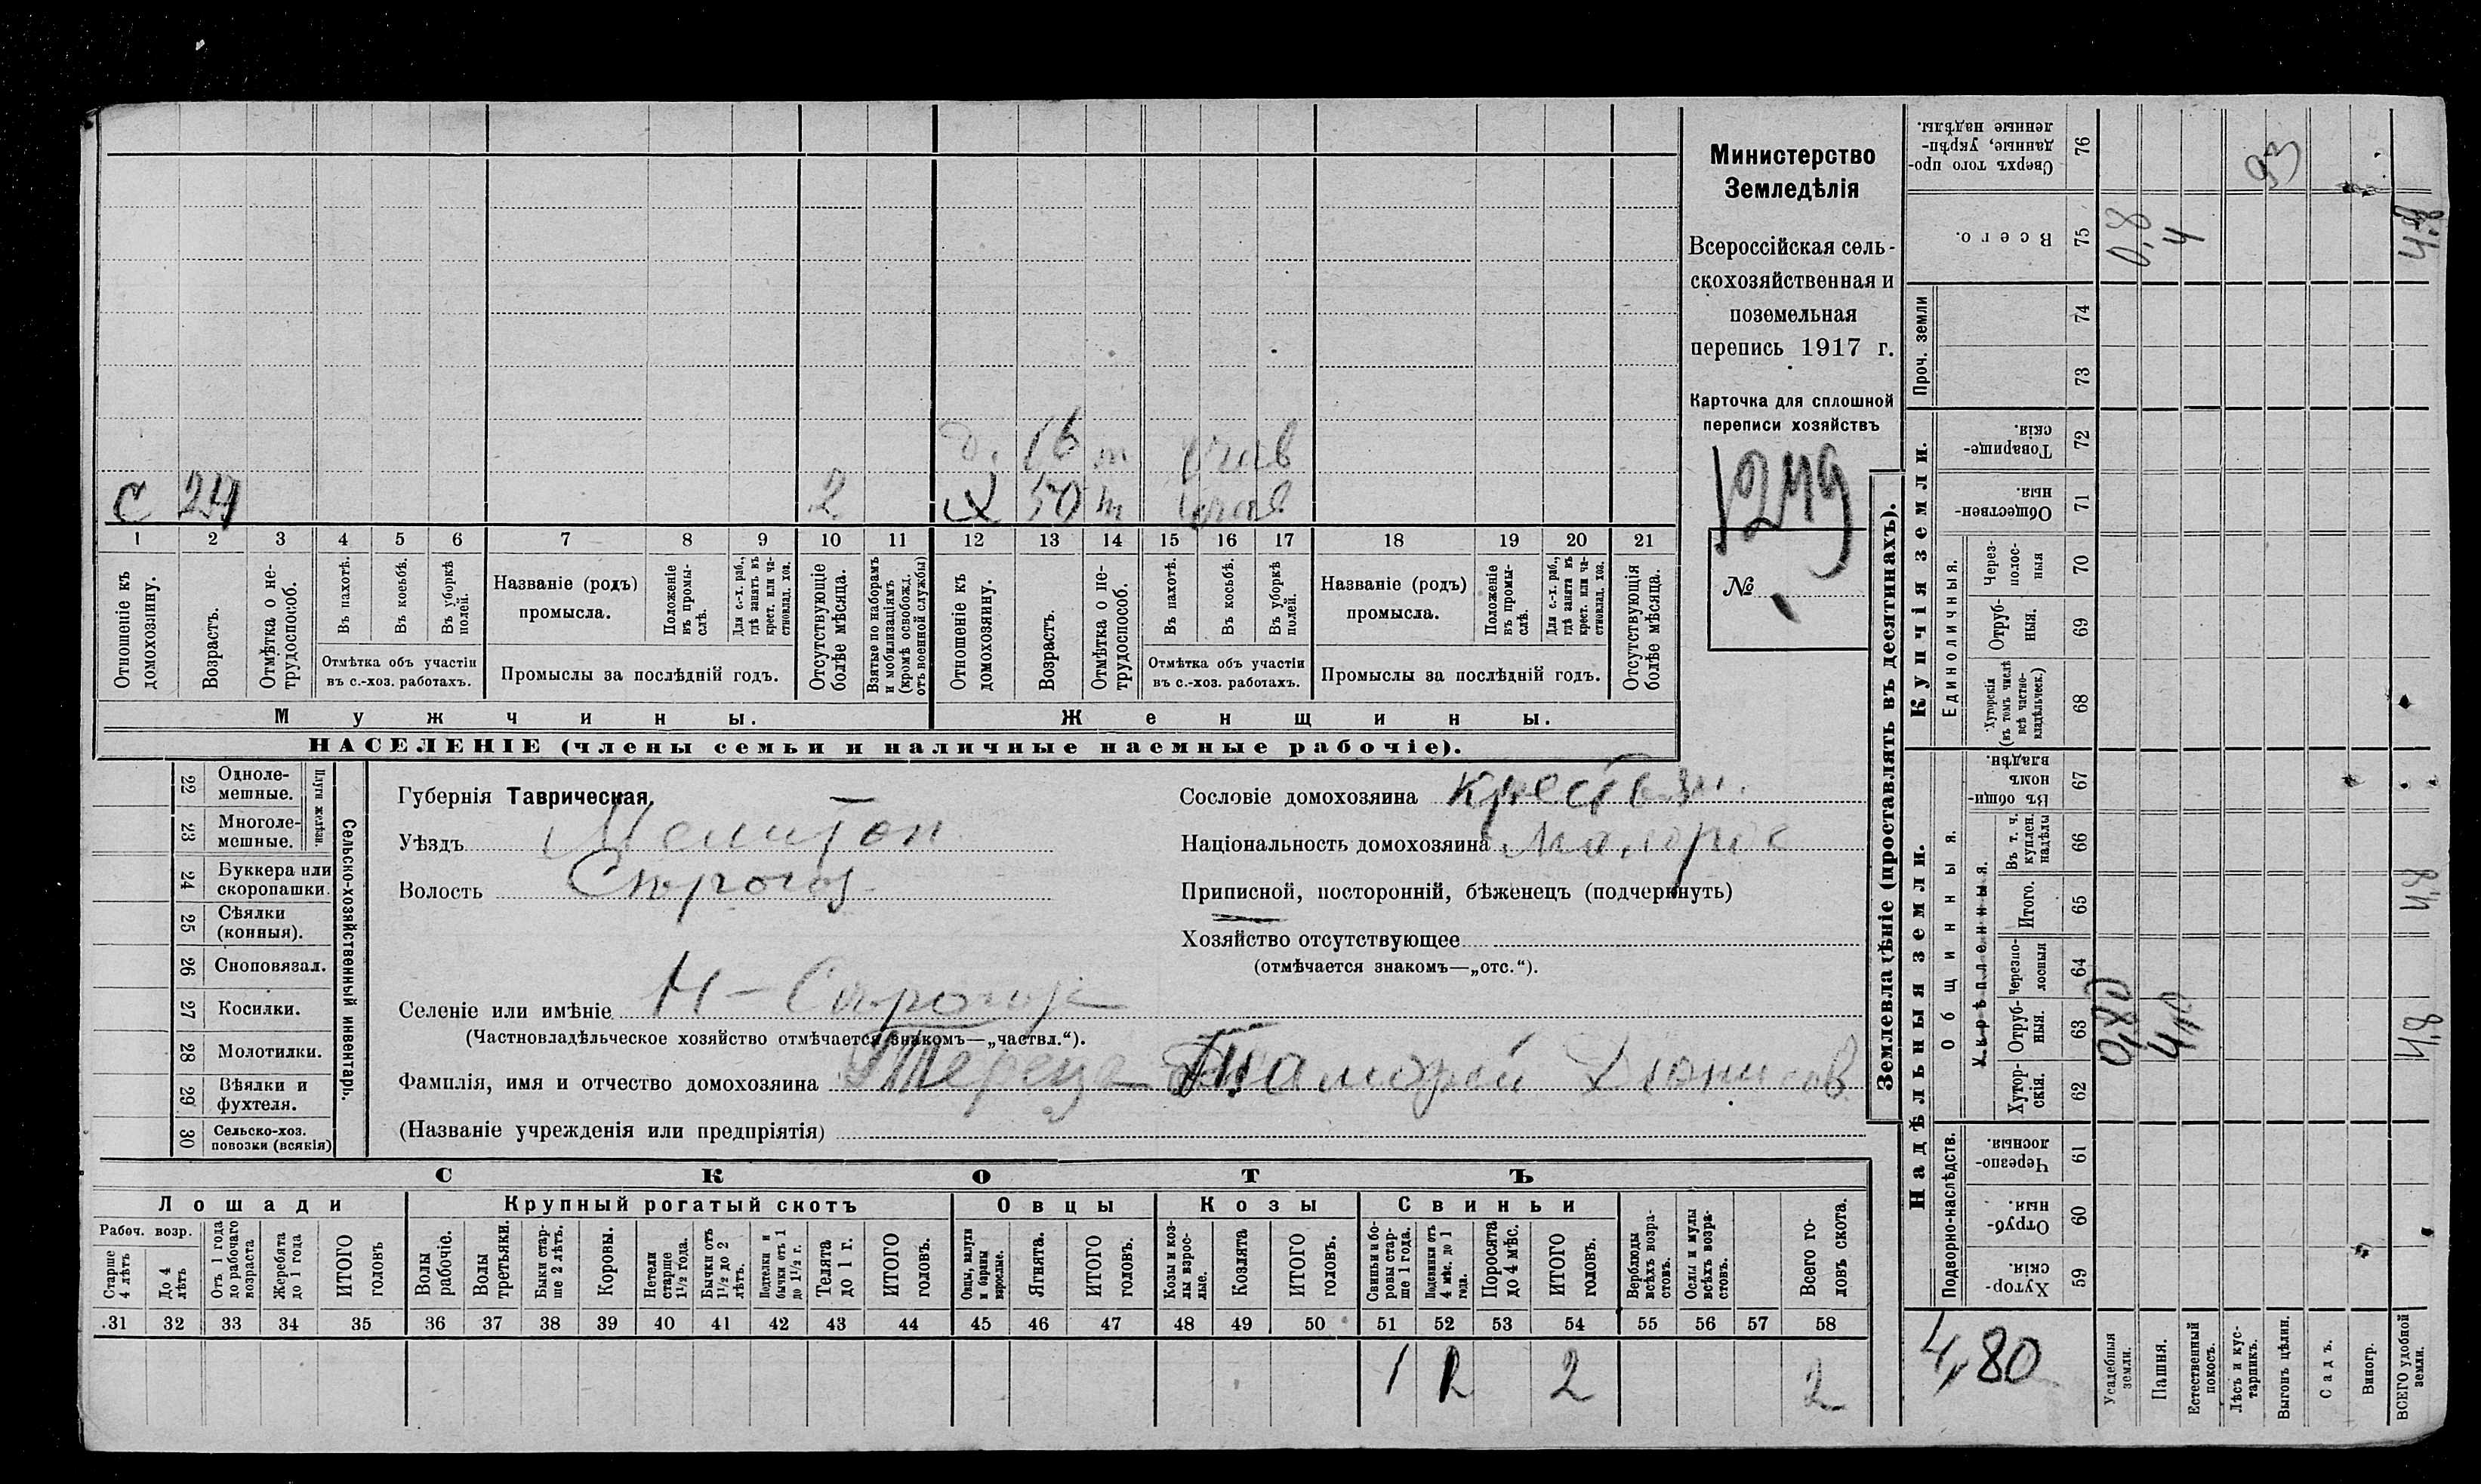 Министерство
Земледѣлія
Всероссійская сель-
скохозяйственная и
поземельная
перепись 1917 г.
Карточка для сплошной
переписи хозяйствъ
1249
№
С 24 2
16 т
50 т
1 2 3 4 5 6 7 8 9 10 11 12 13 14 15 16 17 18 19 20 21
Отношеніе къ домохозяину.
Возрастъ.
Отмѣтка о не-трудоспособ.
Въ пахотѣ.
Въ косьбѣ.
Въ уборкѣ полей.
Отмѣтка объ участіи
въ с.-хоз. работахъ.
Названіе (родъ)
промысла.
Положеніе въ промы-слѣ.
Для с.-х. раб., гдѣ занятъ въ крест. или ча-стновлад. хоз.
Промыслы за послѣдній годъ.
Отсутствующіе болѣе мѣсяца.
Взятые по наборамъ и мобилизаціямъ (кромѣ освобожд. отъ военной службы)
Отношеніе къ домохозяину.
Возрастъ.
Отмѣтка о не-трудоспособ.
Въ пахотѣ.
Въ косьбѣ.
Въ уборкѣ полей.
Отмѣтка объ участіи
въ с.-хоз. работахъ.
Названіе (родъ)
промысла.
Положеніе въ промы-слѣ.
Для с.-х. раб., гдѣ занята въ крест. или ча-стновлад. хоз.
Промыслы за послѣдній годъ.
Отсутствующія болѣе мѣсяца.
Мужчины.
Женщины.
НАСЕЛЕНІЕ (члены семьи и наличные наемные рабочіе).
Сельско-хозяйственный инвентарь.
Плуги желѣзн.
22 Одноле-мешные.
23 Многоле-мешные.
24 Буккера или скоропашки.
25 Сѣялки (конныя).
26 Сноповязал.
27 Косилки.
28 Молотилки.
29 Вѣялки и фухтеля.
30 Сельско-хоз. повозки (всякія)
Губернія Таврическая.
Уѣздъ Мелитоп
Волость
Селеніе или имѣніе
(Частновладѣльческое хозяйство отмѣчается знакомъ—„частвл.“).
Фамилія, имя и отчество домохозяина
(Названіе учрежденія или предпріятія)
Сословіе домохозяина крестьян.
Національность домохозяина малорос
Приписной, посторонній, бѣженецъ (подчеркнуть)
Хозяйство отсутствующее
(отмѣчается знакомъ—„отс.“).
СКОТЪ
Лошади
Крупный рогатый скотъ
Овцы
Козы
Свиньи
Рабоч. возр.
Старше 4 лѣтъ
До 4 лѣтъ
Отъ 1 года до рабочаго возраста
Жеребята до 1 года
ИТОГО головъ
Волы рабочіе.
Волы третьяки.
Быки стар-ше 2 лѣтъ.
Коровы.
Нетели старше 1½ года.
Бычки отъ 1½ до 2 лѣтъ.
Подтелки и бычки отъ 1 до 1½ г.
Телята до 1 г.
ИТОГО головъ.
Овцы, валухи и бараны взрослые.
Ягнята.
ИТОГО головъ.
Козы и коз-лы взрос-лые.
Козлята
ИТОГО головъ.
Свиньи и бо-ровы стар-ше 1 года.
Подсвинки отъ 4 мѣс. до 1 года.
Поросята до 4 мѣс.
ИТОГО головъ.
Верблюды всѣхъ возра-стовъ.
Ослы и мулы всѣхъ возра-стовъ.
Всего го-ловъ скота.
31 32 33 34 35 36 37 38 39 40 41 42 43 44 45 46 47 48 49 50 51 52 53 54 55 56 57 58
2 2
Землевладѣніе (проставлять въ десятинахъ).
Надѣльныя земли.
Купчія земли.
Проч. земли
Сверхъ того про-данные, укрѣп-ленные надѣлы. 76
Всего. 75 0,8 4 4,8
74
73
Товарище-скія. 72
Обществен-ныя. 71
Единоличныя.
Через-полос-ныя 70
Отруб-ныя. 69
Хуторскія (въ томъ числѣ всѣ частно-владѣльческ.) 68
Общинныя.
Въ общи-номъ владѣн. 67
Укрѣпленныя.
Въ т. ч. куплен. надѣлы 66
Итого. 65 4,8
Черезпо-лосныя 64
Отруб-ныя. 63 0,80 4,0 4,8
Хутор-скія. 62
Подворно-наслѣдств.
Черезпо-лосныя. 61
Отруб-ныя. 60
Хутор-скія. 59
93
4,80
Усадебныя земли.
Пашня.
Естественный покосъ.
Лѣсъ и кус-тарникъ.
Выгонъ цѣлин.
Садъ.
Виногр.
ВСЕГО удобной земли.